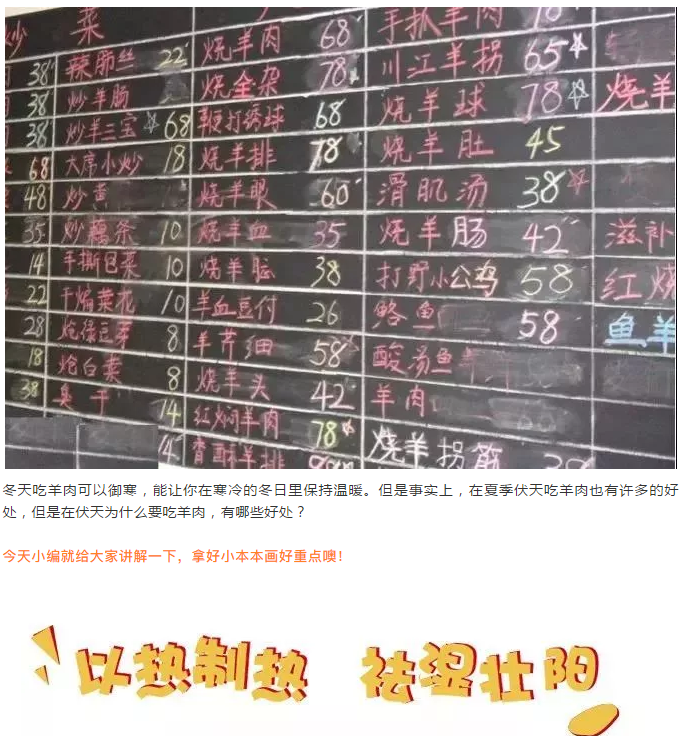 炒 菜
38 辣肠丝 22 烧羊肉 68 手抓羊肉
38 炒羊肠 烧全杂 78 川江羊拐 65
38 炒羊三宝 68 鞭打绣球 68 烧羊球 78 烧羊
68 大席小炒 18 烧羊排 78 烧羊肚 45
48 炒黄 烧羊眼 60 滑肌汤 38
35 炒藕条 10 烧羊血 35 烧羊肠 42 滋补
14 手撕包菜 10 烧羊脸 38 打野小公鸡 58 红烧
22 干煸菜花 10 羊血豆付 26 鲐鱼 58 鱼羊
28 炝绿豆芽 8 羊芹细 58 酸汤鱼
18 炝白菜 8 烧羊头 42 羊肉
38 臭干 14 红焖羊肉 78 烧羊拐筋
14 香酥羊排
冬天吃羊肉可以御寒，能让你在寒冷的冬日里保持温暖。但是事实上，在夏季伏天吃羊肉也有许多的好
处，但是在伏天为什么要吃羊肉，有哪些好处？
今天小编就给大家讲解一下，拿好小本本画好重点噢！
以热制热 祛湿壮阳